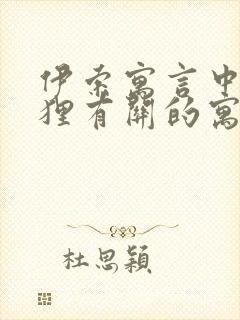 伊索寓言中
狸有關的寓
杜思穎